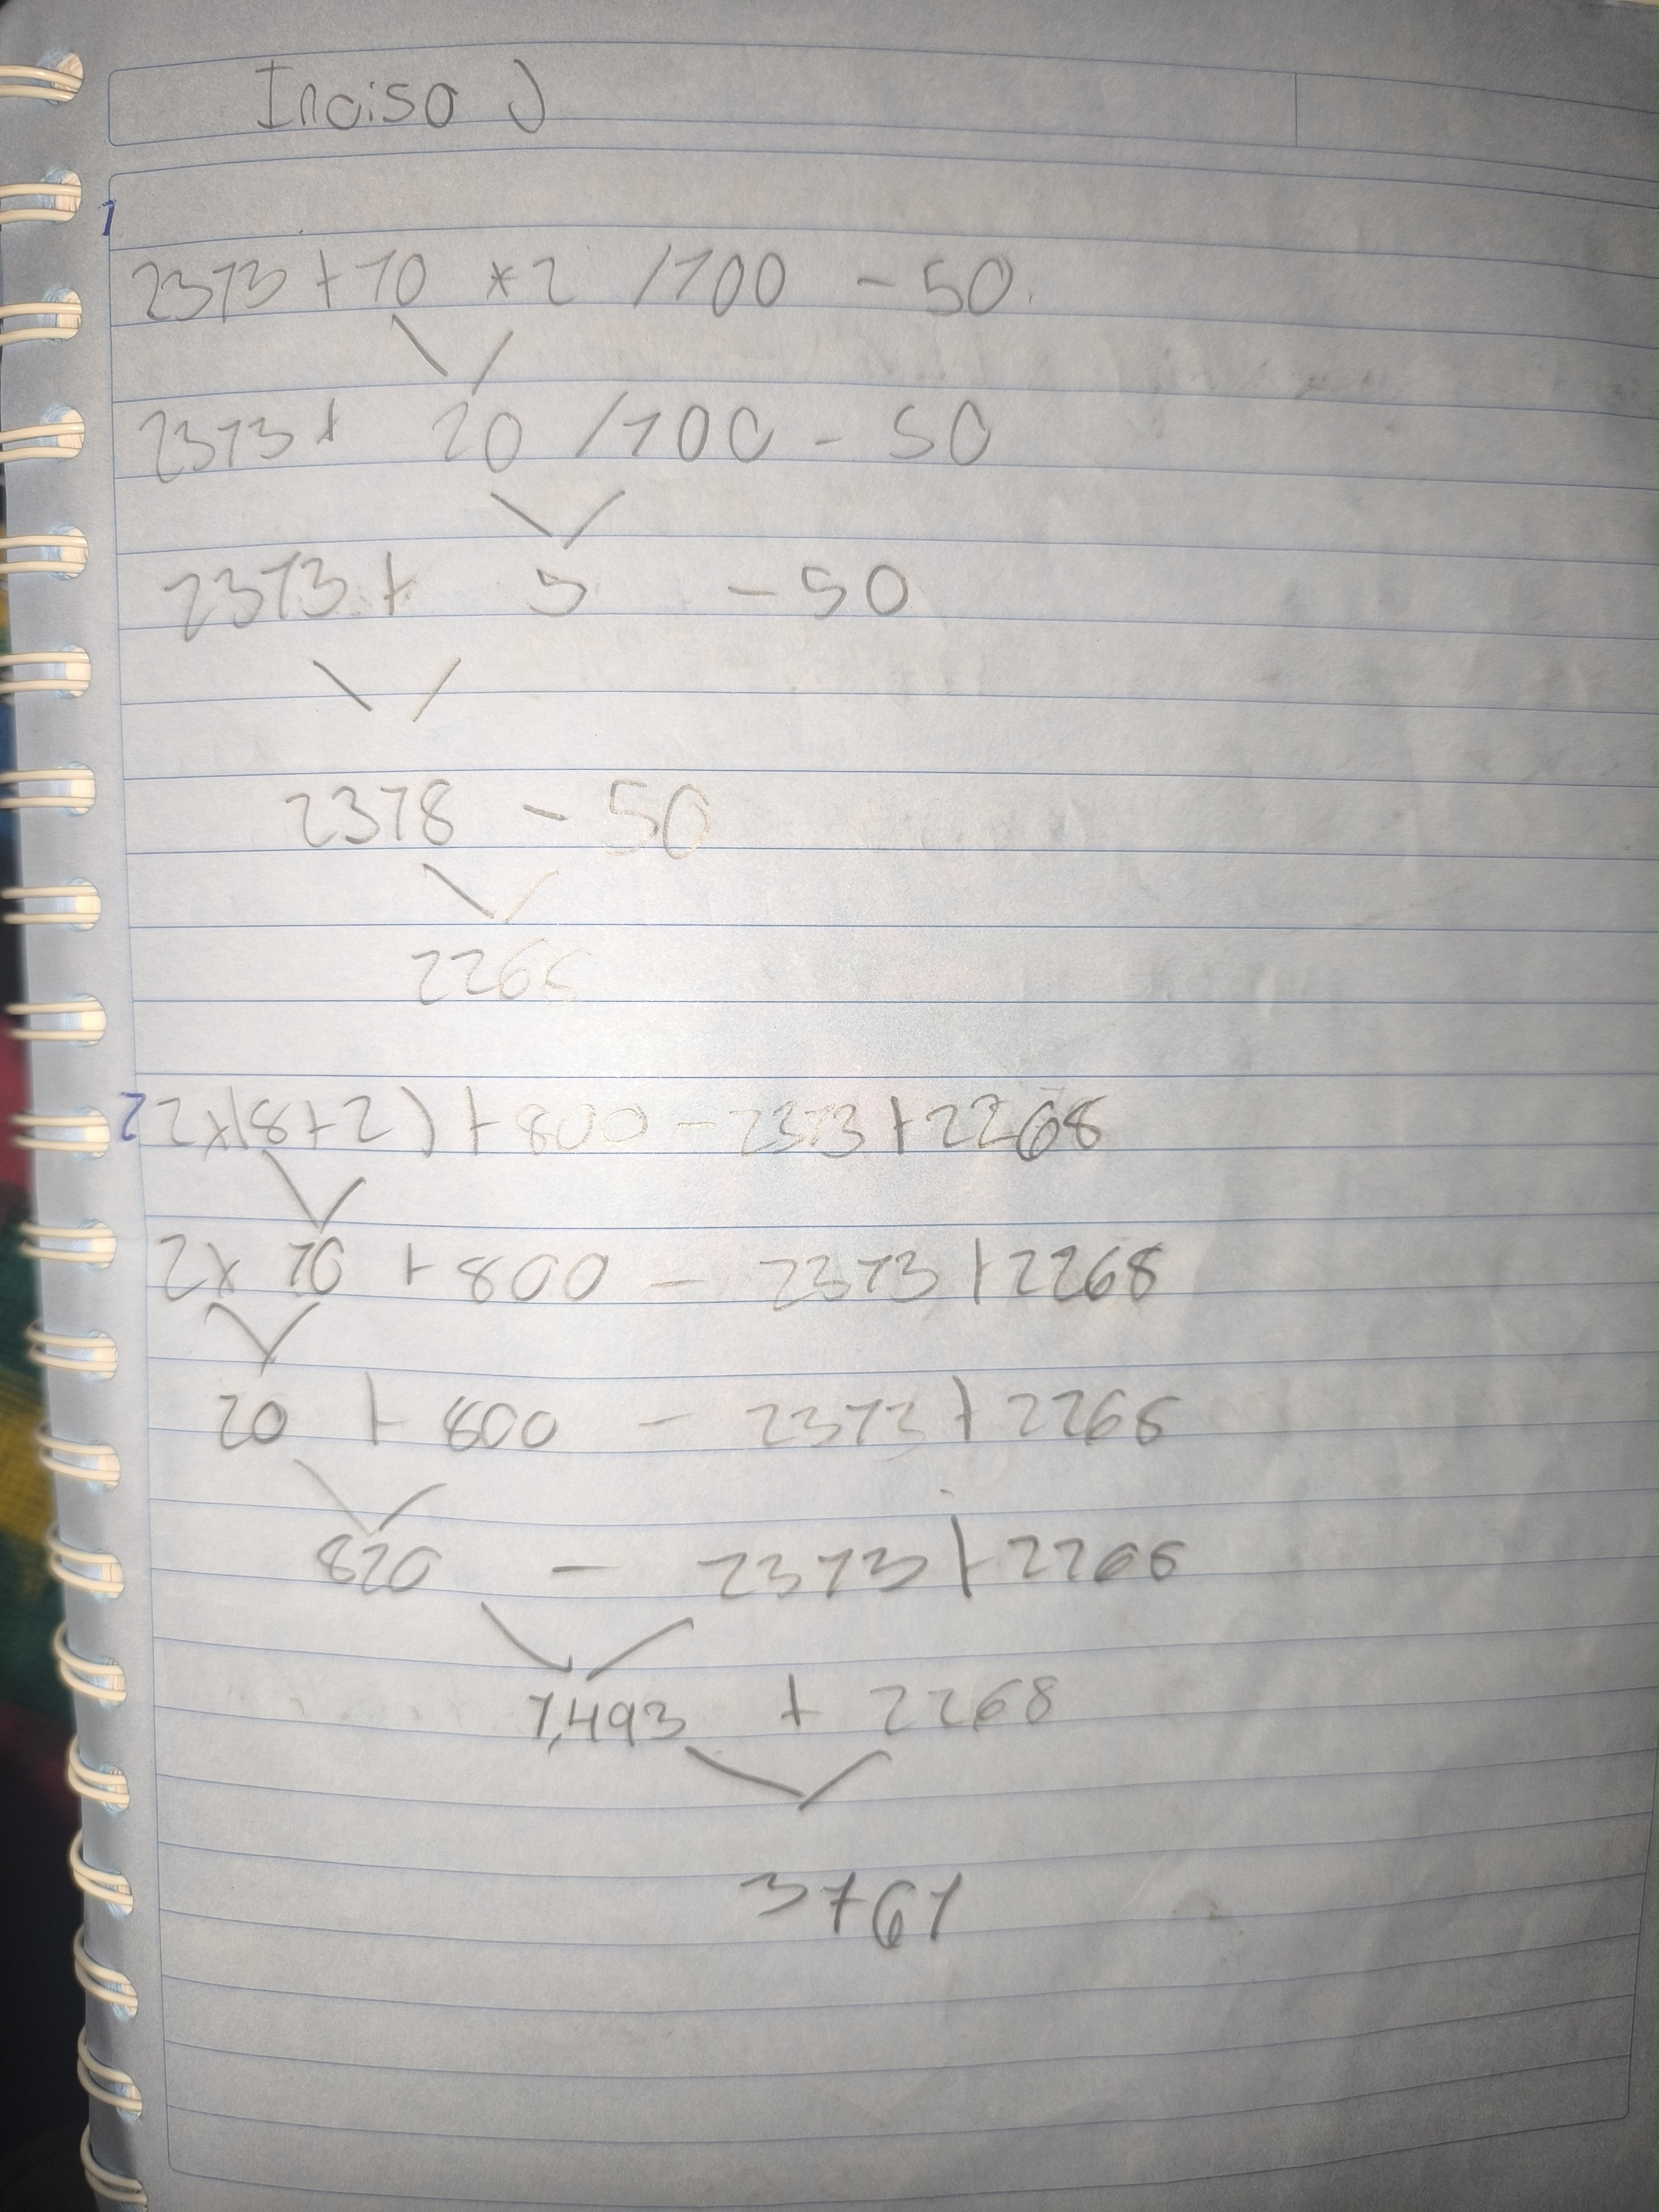 Inciso J
1
2313+10 *2 /100 - 50
2313+ 20 /100 - 50
2313+ 5 - 50
2318 - 50
2268
2 2x(8+2)+800-2313+2268
2x 10 +800 - 2313+2268
20 + 800 - 2313+2268
820 - 2313+2268
1,493 + 2268
3761